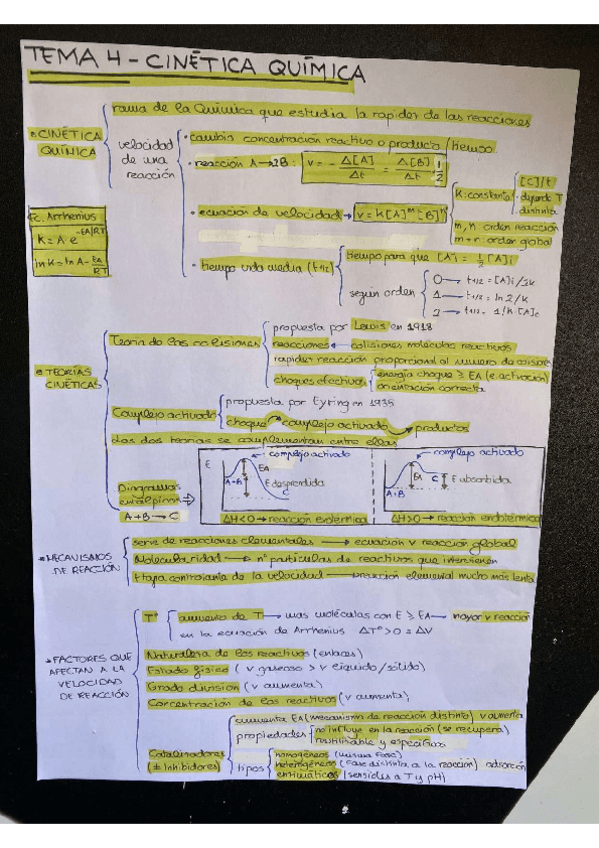 TEMA 4 - CINÉTICA QUÍMICA
CINÉTICA QUÍMICA
rama de la Química que estudia la rapidez de las reacciones
velocidad de una reacción
• cambio concentración reactivo o producto / tiempo
• reacción A → 2B : v = - Δ[A]/Δt = Δ[B]/Δt · 1/2
• ecuación de velocidad → v = K[A]^m · [B]^n
K: constante
[C]/t
• depende T
• distinta
m, n orden reacción
m + n orden global
Ec. Arrhenius
K = A · e^-EA/RT
ln K = ln A - EA/RT
• tiempo vida media (t1/2)
tiempo para que [A] = 1/2 [A]i
según orden
0 → t1/2 = [A]i/2k
1 → t1/2 = ln 2/k
2 → t1/2 = 1/k·[A]
TEORÍAS CINÉTICAS
Teoría de las colisiones
propuesta por Lewis en 1918
reacciones ← colisiones moléculas reactivos
rapidez reacción proporcional al número de
choques efectivos
energía choque ≥ EA (e. activación)
orientación correcta
Complejo activado
propuesta por Eyring en 1935
choque → complejo activado → productos
Las dos teorías se complementan entre ellas
Diagramas entálpicos
A + B → C
E
complejo activado
EA
A+B
E desprendida
C
ΔH<0 → reacción exotérmica
complejo activado
EA
C
E absorbida
A+B
ΔH>0 → reacción endotérmica
MECANISMOS DE REACCIÓN
serie de reacciones elementales → ecuación v reacción global
Molecularidad → nº partículas de reactivos que intervienen
Etapa controlante de la velocidad → reacción elemental mucho más lenta
FACTORES QUE AFECTAN A LA VELOCIDAD DE REACCIÓN
Tª
aumento de T → más moléculas con E ≥ EA → mayor v reacción
en la ecuación de Arrhenius ΔTª>0 = ΔV
Naturaleza de los reactivos (enlaces)
Estado físico (v gaseoso > v líquido/sólido)
Grado división (v aumenta)
Concentración de los reactivos (v aumenta)
Catalizadores (≠ Inhibidores)
aumenta EA (mecanismo de reacción distinto) v aumenta
propiedades
no influye en la reacción (se recupera)
reutilizable y específicos
tipos
homogéneos (misma fase)
heterogéneos (fase distinta a la reacción) adsorción
enzimáticos (sensibles a T y pH)